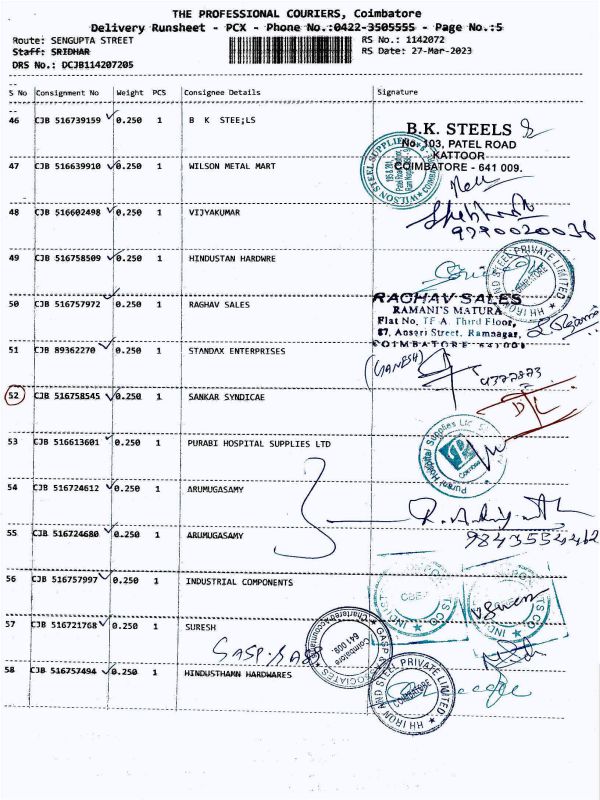 THE PROFESSIONAL COURIERS, Coimbatore
Delivery Runsheet - PCX - Phone No.:0422-3505555 - Page No.:5
Route: SENGUPTA STREET RS No.: 1142072
Staff: SRIDHAR RS Date: 27-Mar-2023
DRS No.: DCJB114207205
S No Consignment No Weight PCS Consignee Details Signature
46 CJB 516739159 0.250 1 B K STEE;LS
B.K. STEELS
No. 103, PATEL ROAD
KATTOOR
COIMBATORE - 641 009.
47 CJB 516639910 0.250 1 WILSON METAL MART
WILSON STEEL SUPPLIERS
48 CJB 516602498 0.250 1 VIJYAKUMAR
49 CJB 516758509 0.250 1 HINDUSTAN HARDWRE
HH IRON AND STEEL PRIVATE LIMITED
COIMBATORE
50 CJB 516757972 0.250 1 RAGHAV SALES
RAGHAV SALES
RAMANI'S MATURA
Flat No. TF A, Third Floor,
87, Ansari Street, Ramnagar,
COIMBATORE 641009
51 CJB 89362270 0.250 1 STANDAX ENTERPRISES
(GANESH)
52 CJB 516758545 0.250 1 SANKAR SYNDICAE
53 CJB 516613601 0.250 1 PURABI HOSPITAL SUPPLIES LTD
Purabi Hospital Supplies Ltd
54 CJB 516724612 0.250 1 ARUMUGASAMY
55 CJB 516724680 0.250 1 ARUMUGASAMY
56 CJB 516757997 0.250 1 INDUSTRIAL COMPONENTS
57 CJB 516721768 0.250 1 SURESH
GASP ASSOCIATES
Chartered Accountants
Coimbatore
641 009.
58 CJB 516757494 0.250 1 HINDUSTHAMN HARDWARES
HH IRON AND STEEL PRIVATE LIMITED
COIMBATORE